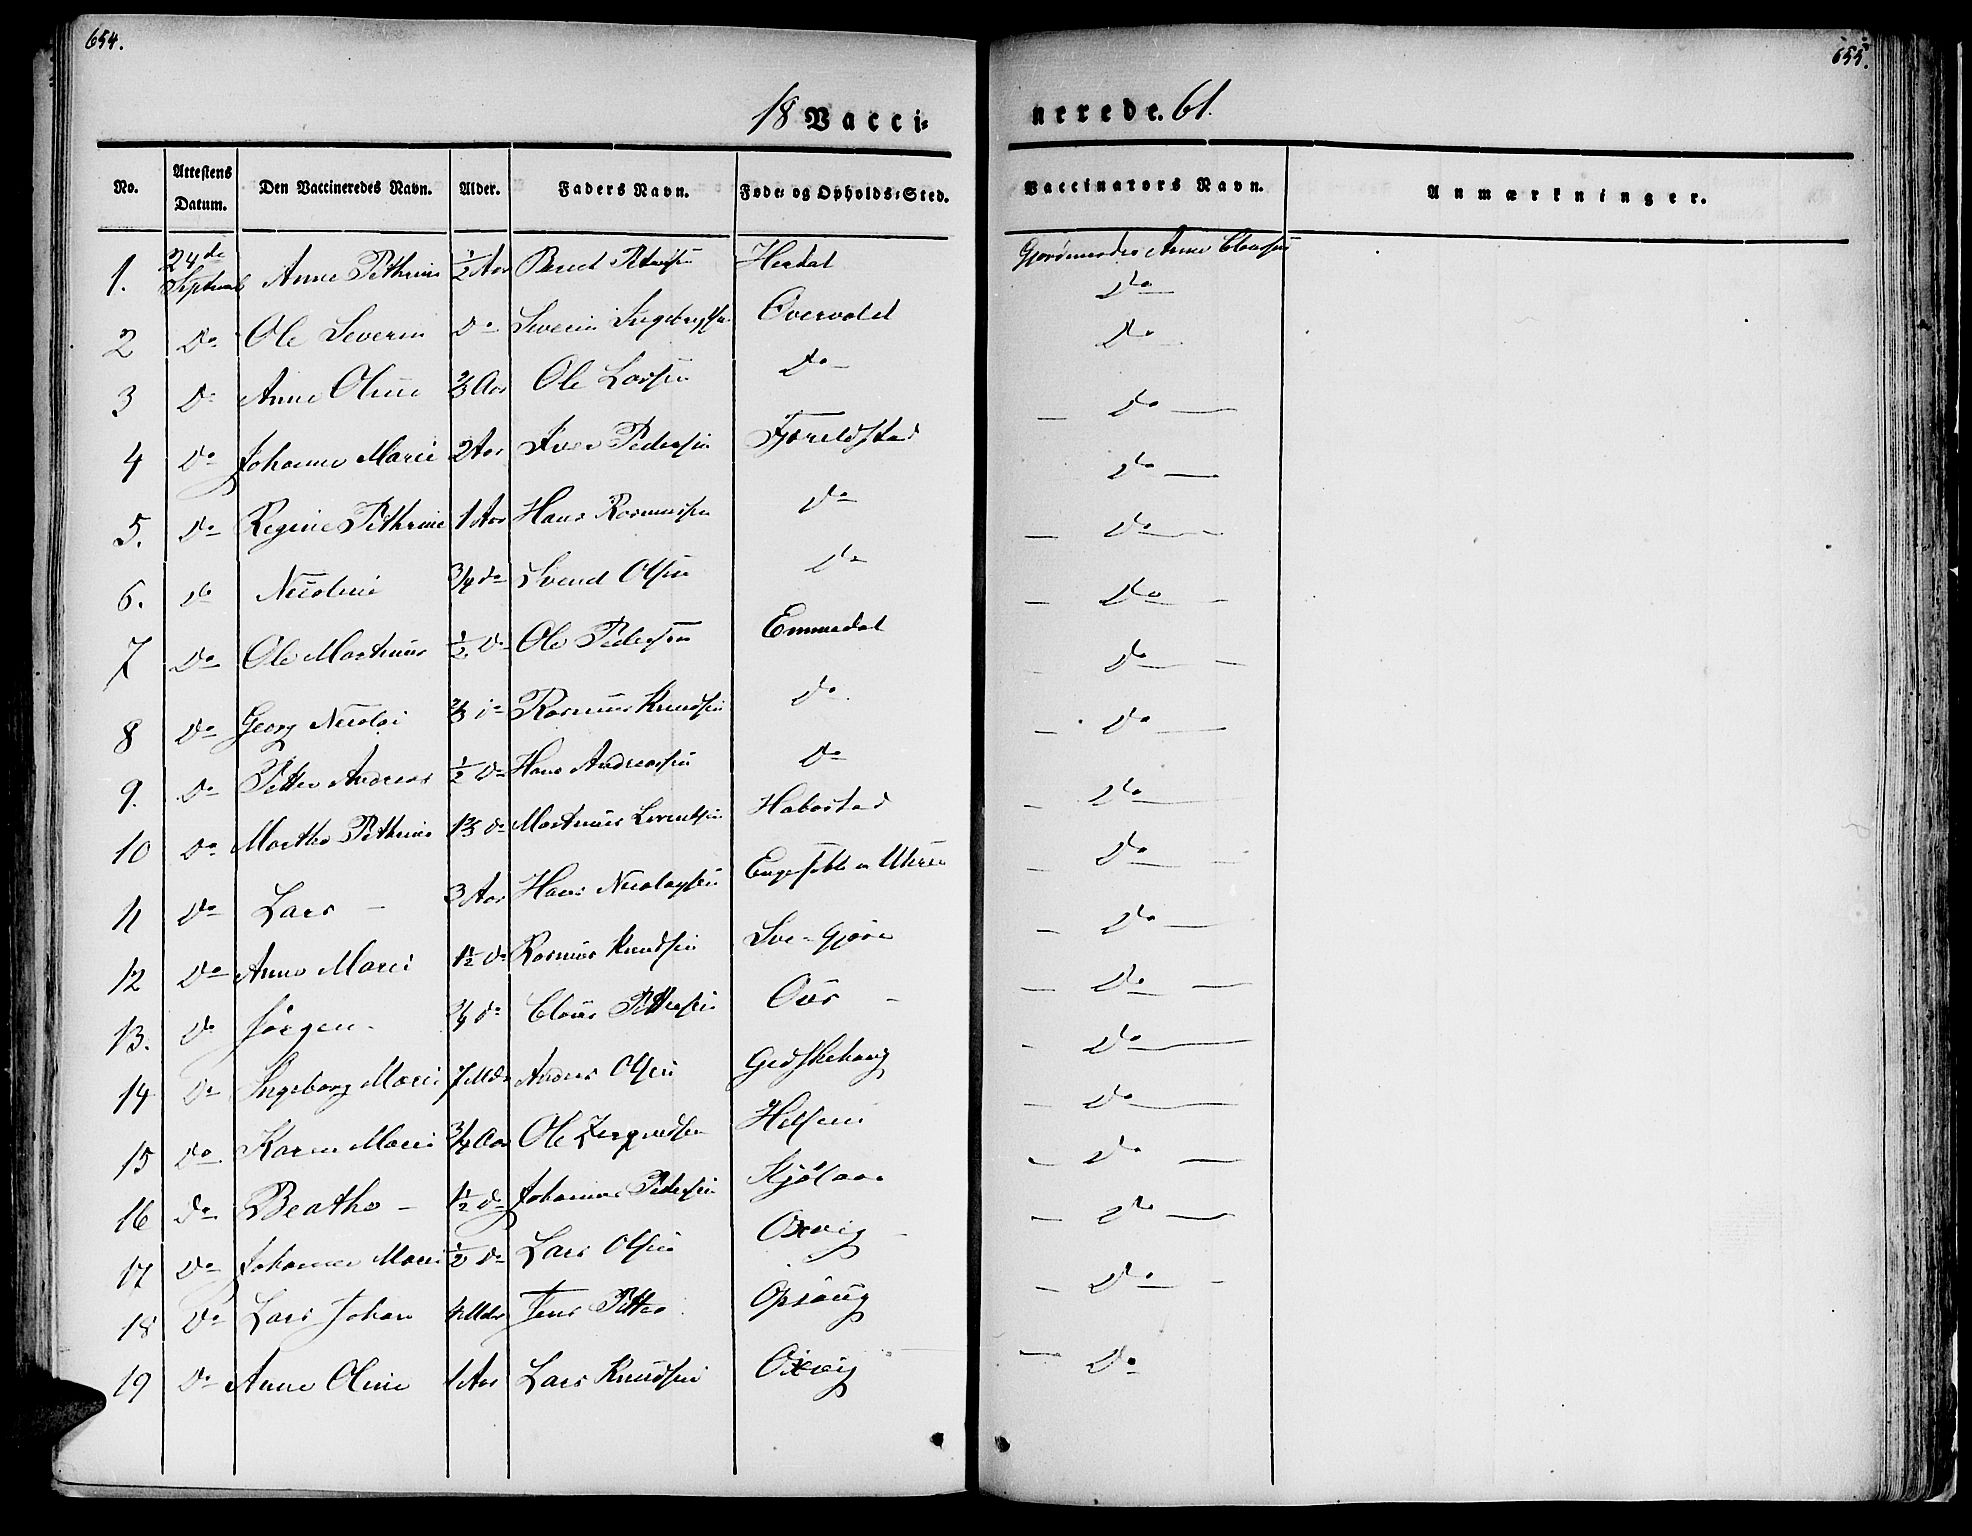 654.
655.
18 Vacci=
nerede. 61.
No.
Attestens Datum.
Den Vaccineredes Navn.
Alder.
Faders Navn.
Føde= og Opholds=Sted.
Vaccinators Navn.
Anmærkninger.
1. 24de Septemb Anne Pethrine ½ Aar Bend Herdal Gjordemoder Anne Clausen
2 Do Ole Severin Do Severin Overvold Do
3 Do Anne Oline ⅔ Aar Ole Larsen Do Do
4 Do Johanne Marie 2 Aar Iver Pedersen Fjøreldstad Do
5. Do Regine Pethrine 1 Aar Hans Rasmussen Do Do
6. Do Nicoline ¾ Do Svend Olsen Do Do
7 Do Ole Martinus ½ Do Ole Pedersen Emmedal Do
8 Do Georg Nicolai ⅔ Do Rasmus Knudsen Do Do
9. Do Petter Andreas ½ Do Hans Andreassen Do Do
10 Do Marthe Pethrine Do Martinus Lorentsen Habostad Do
11 Do Lars 3 Aar Hans Nicolaysen Do
12 Do Anne Marie 1½ Do Rasmus Knudsen Do
13. Do Jörgen Do Claus Pettersen Ous Do
14 Do Ingeborg Marie 7 Mdr Anders Olsen Gedskehaug Do
15 Do Karen Marie ¾ Aar Ole Do
16 Do Beathe 1½ Do Johannes Pedersen Do
17 Do Johanne Marie ½ Do Lars Olsen Oxvig Do
18 Do Lars Johan 4 Mdr Jens Petter Opsaug Do
19 Do Anne Oline 1 Aar Lars Knudsen Oxvig Do